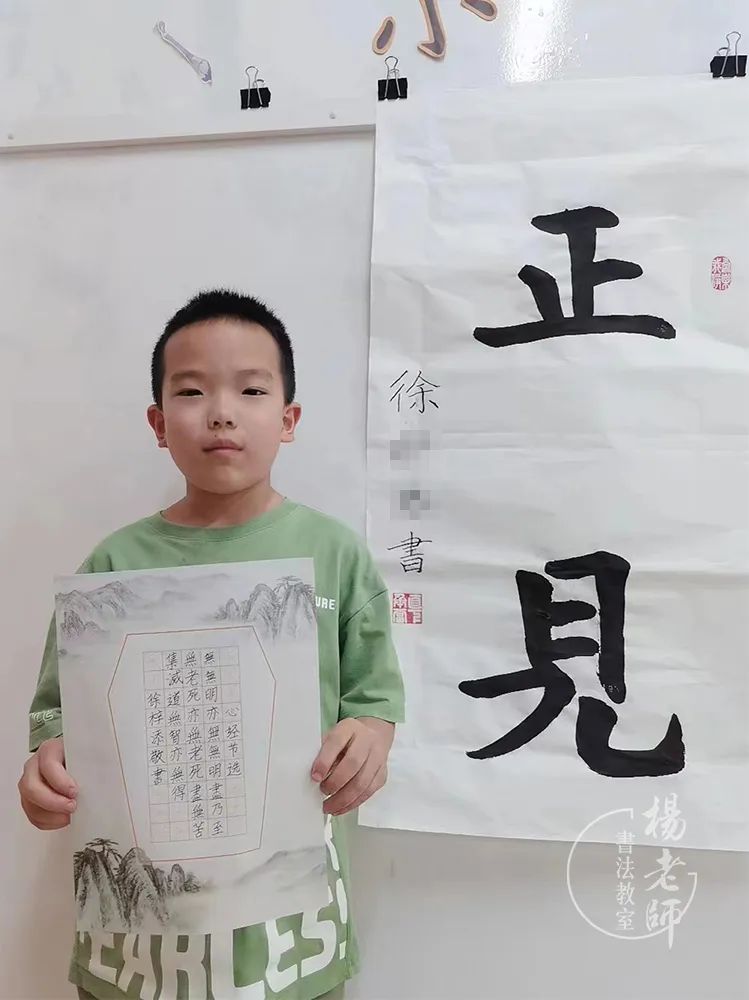 正見
徐
書
心经节选
無無明亦無無明盡乃至
無老死亦無老死盡無苦
集滅道無智亦無得
徐梓添敬書
URE
EARLESS!
楊老師
書法教室